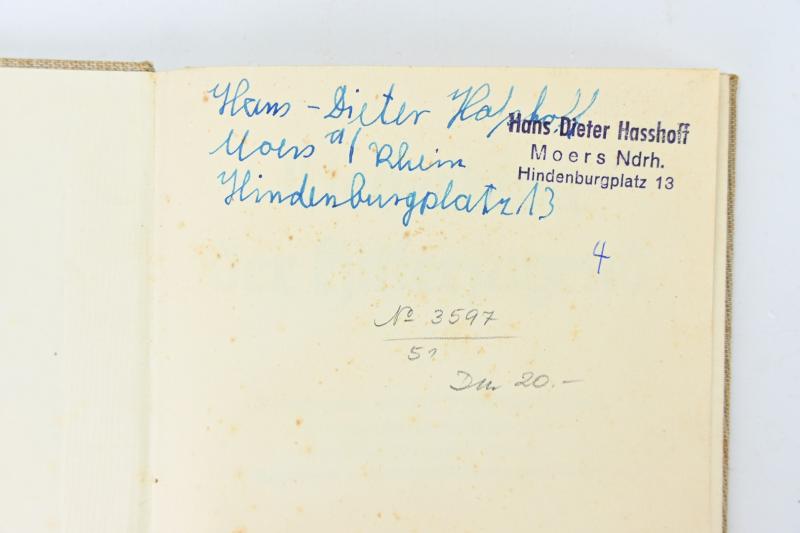 Hans-Dieter Haßhoff
Moers a/ Rhein
Hindenburgplatz 13
Hans Dieter Hasshoff
Moers Ndrh.
Hindenburgplatz 13
4
No 3597
51
Dm 20.-